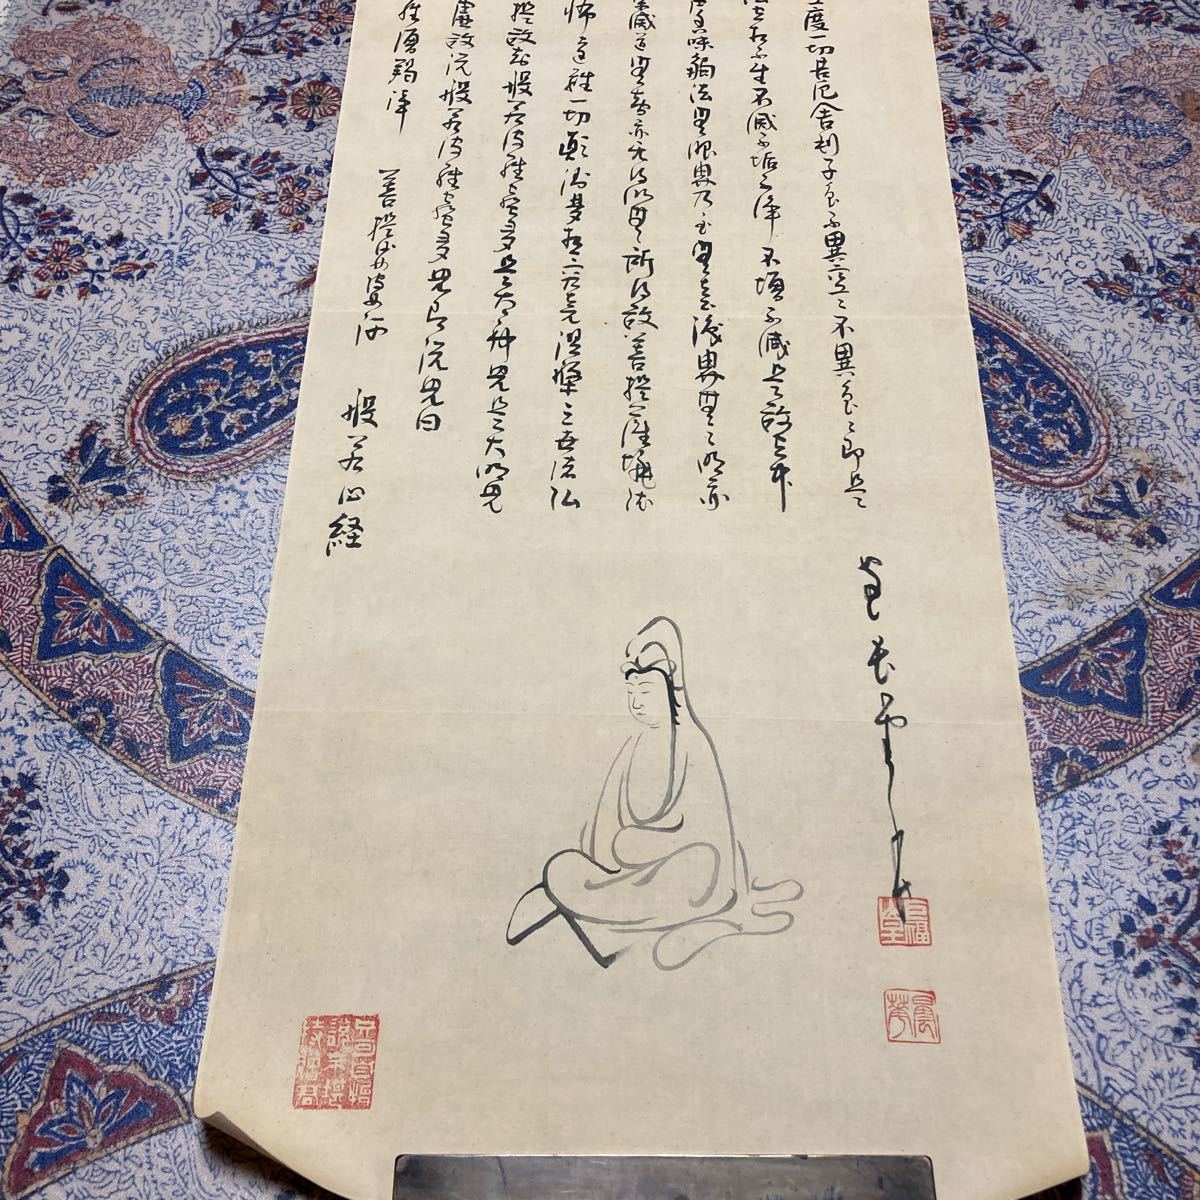 度一切苦厄舎利子色不異空〻不異色〻即是
空相不生不滅不垢不浄不増不減是故空中
香味触法無眼界乃至無意識界無〻明亦
滅道無智亦无得以無所得故菩提薩埵依
怖遠離一切顛倒夢想究竟涅槃三世諸仏
提故知般若波羅蜜多是大神呪是大明呪
虚故説般若波羅蜜多呪即説呪曰
羅僧羯諦 菩提娑婆訶 般若心経